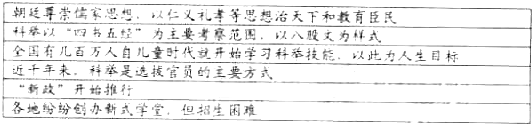 朝廷尊崇儒家思想，以仁义礼孝等思想治天下和教育臣民
科举以“四书五经”为主要考察范围，以八股文为样式
全国有几百万人自儿童时代就开始学习科举技能，以此为人生目标
近千年来，科举是选拔官员的主要方式
“新政”开始推行
各地纷纷创办新式学堂，但招生困难